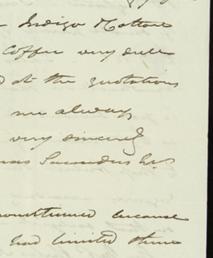 Indigo
Coffee very dull
at the quotations
me always
very sincerely
Saunders Esq
because
had limited them